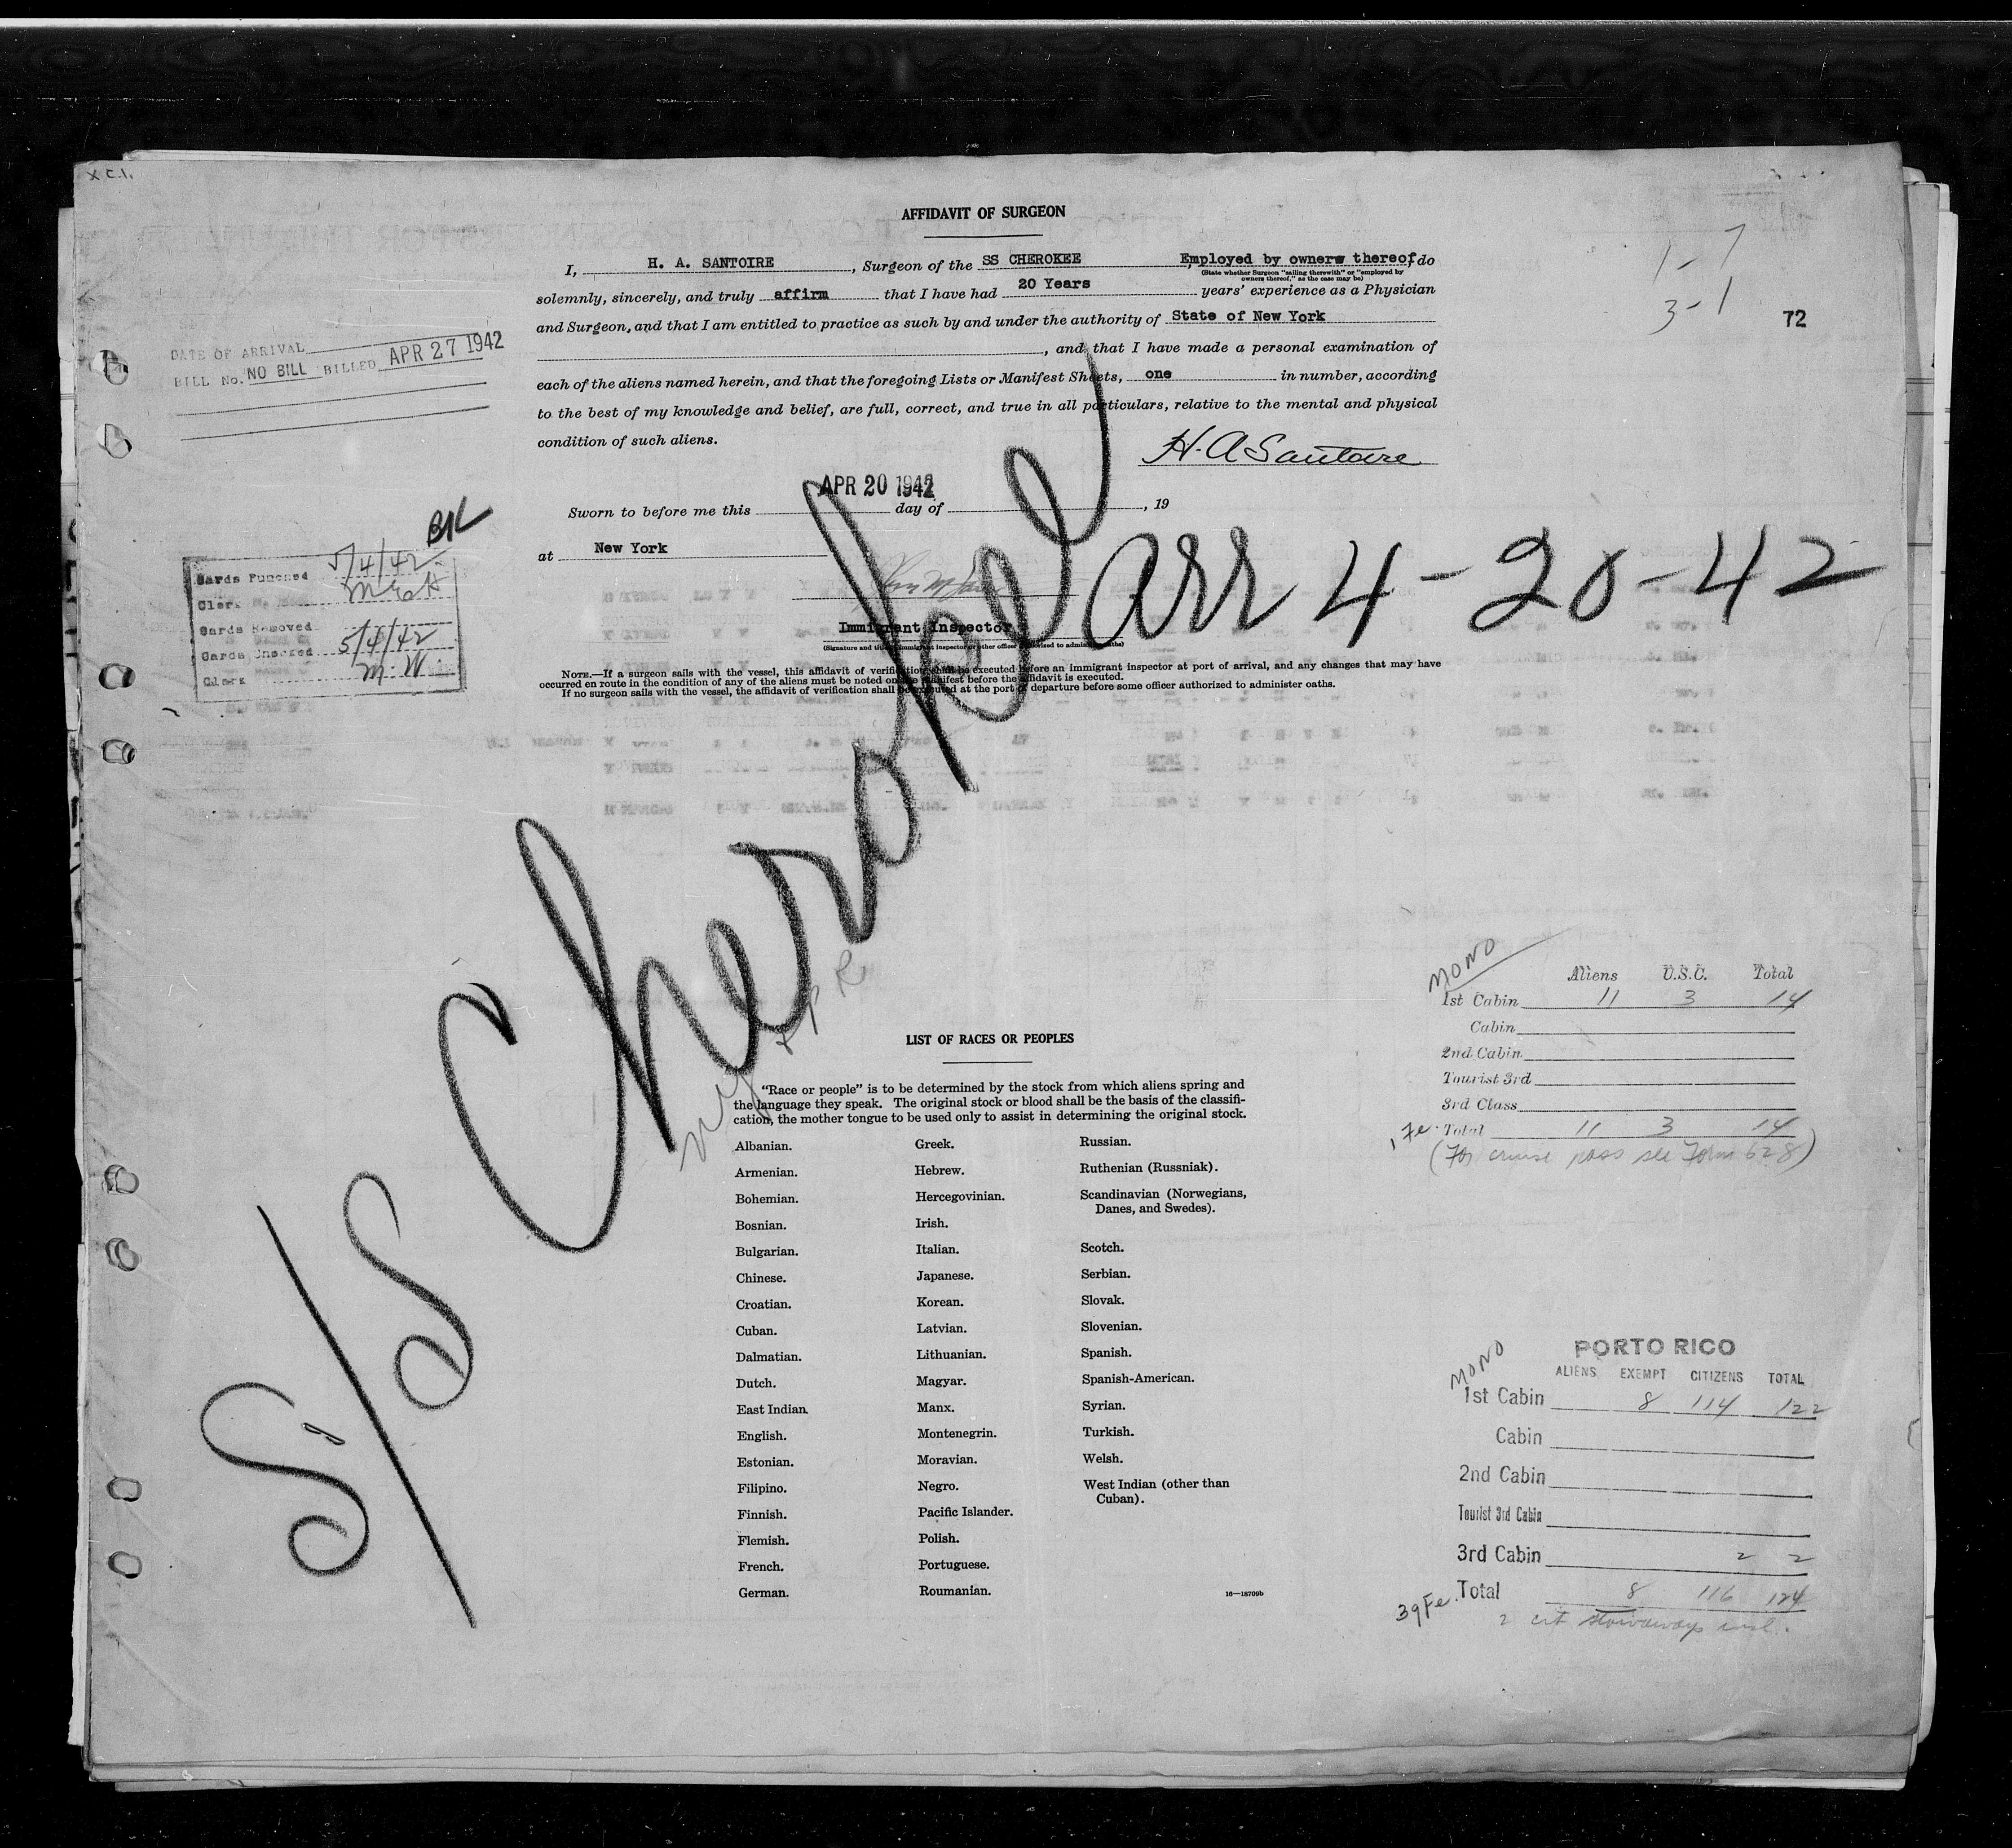 x c.1.
AFFIDAVIT OF SURGEON
I, H. A. SANTOIRE, Surgeon of the SS CHEROKEE Employed by owners thereof, do
(State whether Surgeon "sailing therewith" or "employed by
owners thereof," as the case may be)
solemnly, sincerely, and truly affirm that I have had 20 Years years' experience as a Physician
and Surgeon, and that I am entitled to practice as such by and under the authority of State of New York
, and that I have made a personal examination of
each of the aliens named herein, and that the foregoing Lists or Manifest Sheets, one in number, according
to the best of my knowledge and belief, are full, correct, and true in all particulars, relative to the mental and physical
condition of such aliens.
H. A Santoire
1-7
3-1
72
DATE OF ARRIVAL
BILL No. NO BILL BILLED APR 27 1942
APR 20 1942
Sworn to before me this day of , 19
at New York
Immigrant Inspector
(Signature and title of immigrant inspector or other officer authorized to administer oaths)
NOTE.—If a surgeon sails with the vessel, this affidavit of verification shall be executed before an immigrant inspector at port of arrival, and any changes that may have
occurred en route in the condition of any of the aliens must be noted on the manifest before the affidavit is executed.
If no surgeon sails with the vessel, the affidavit of verification shall be executed at the port of departure before some officer authorized to administer oaths.
BK
Cards Punched 5/4/42
Clerk
Cards Removed
Cards Checked 5/4/42
Clerk M. W.
S/S Cherokee arr 4-20-42
MONO
Aliens U.S.C. Total
1st Cabin 11 3 14
Cabin
2nd Cabin
Tourist 3rd
3rd Class
1 Fe. Total 11 3 14
(For cruise pass see Form 628)
LIST OF RACES OR PEOPLES
"Race or people" is to be determined by the stock from which aliens spring and
the language they speak. The original stock or blood shall be the basis of the classifi-
cation, the mother tongue to be used only to assist in determining the original stock.
Albanian.
Armenian.
Bohemian.
Bosnian.
Bulgarian.
Chinese.
Croatian.
Cuban.
Dalmatian.
Dutch.
East Indian.
English.
Estonian.
Filipino.
Finnish.
Flemish.
French.
German.
Greek.
Hebrew.
Hercegovinian.
Irish.
Italian.
Japanese.
Korean.
Latvian.
Lithuanian.
Magyar.
Manx.
Montenegrin.
Moravian.
Negro.
Pacific Islander.
Polish.
Portuguese.
Roumanian.
Russian.
Ruthenian (Russniak).
Scandinavian (Norwegians,
Danes, and Swedes).
Scotch.
Serbian.
Slovak.
Slovenian.
Spanish.
Spanish-American.
Syrian.
Turkish.
Welsh.
West Indian (other than
Cuban).
16—18709b
MONO
PORTO RICO
ALIENS EXEMPT CITIZENS TOTAL
1st Cabin 8 114 122
Cabin
2nd Cabin
Tourist 3rd Cabin
3rd Cabin 2 2
39 Fe. Total 8 116 124
2 cit stowaways incl.